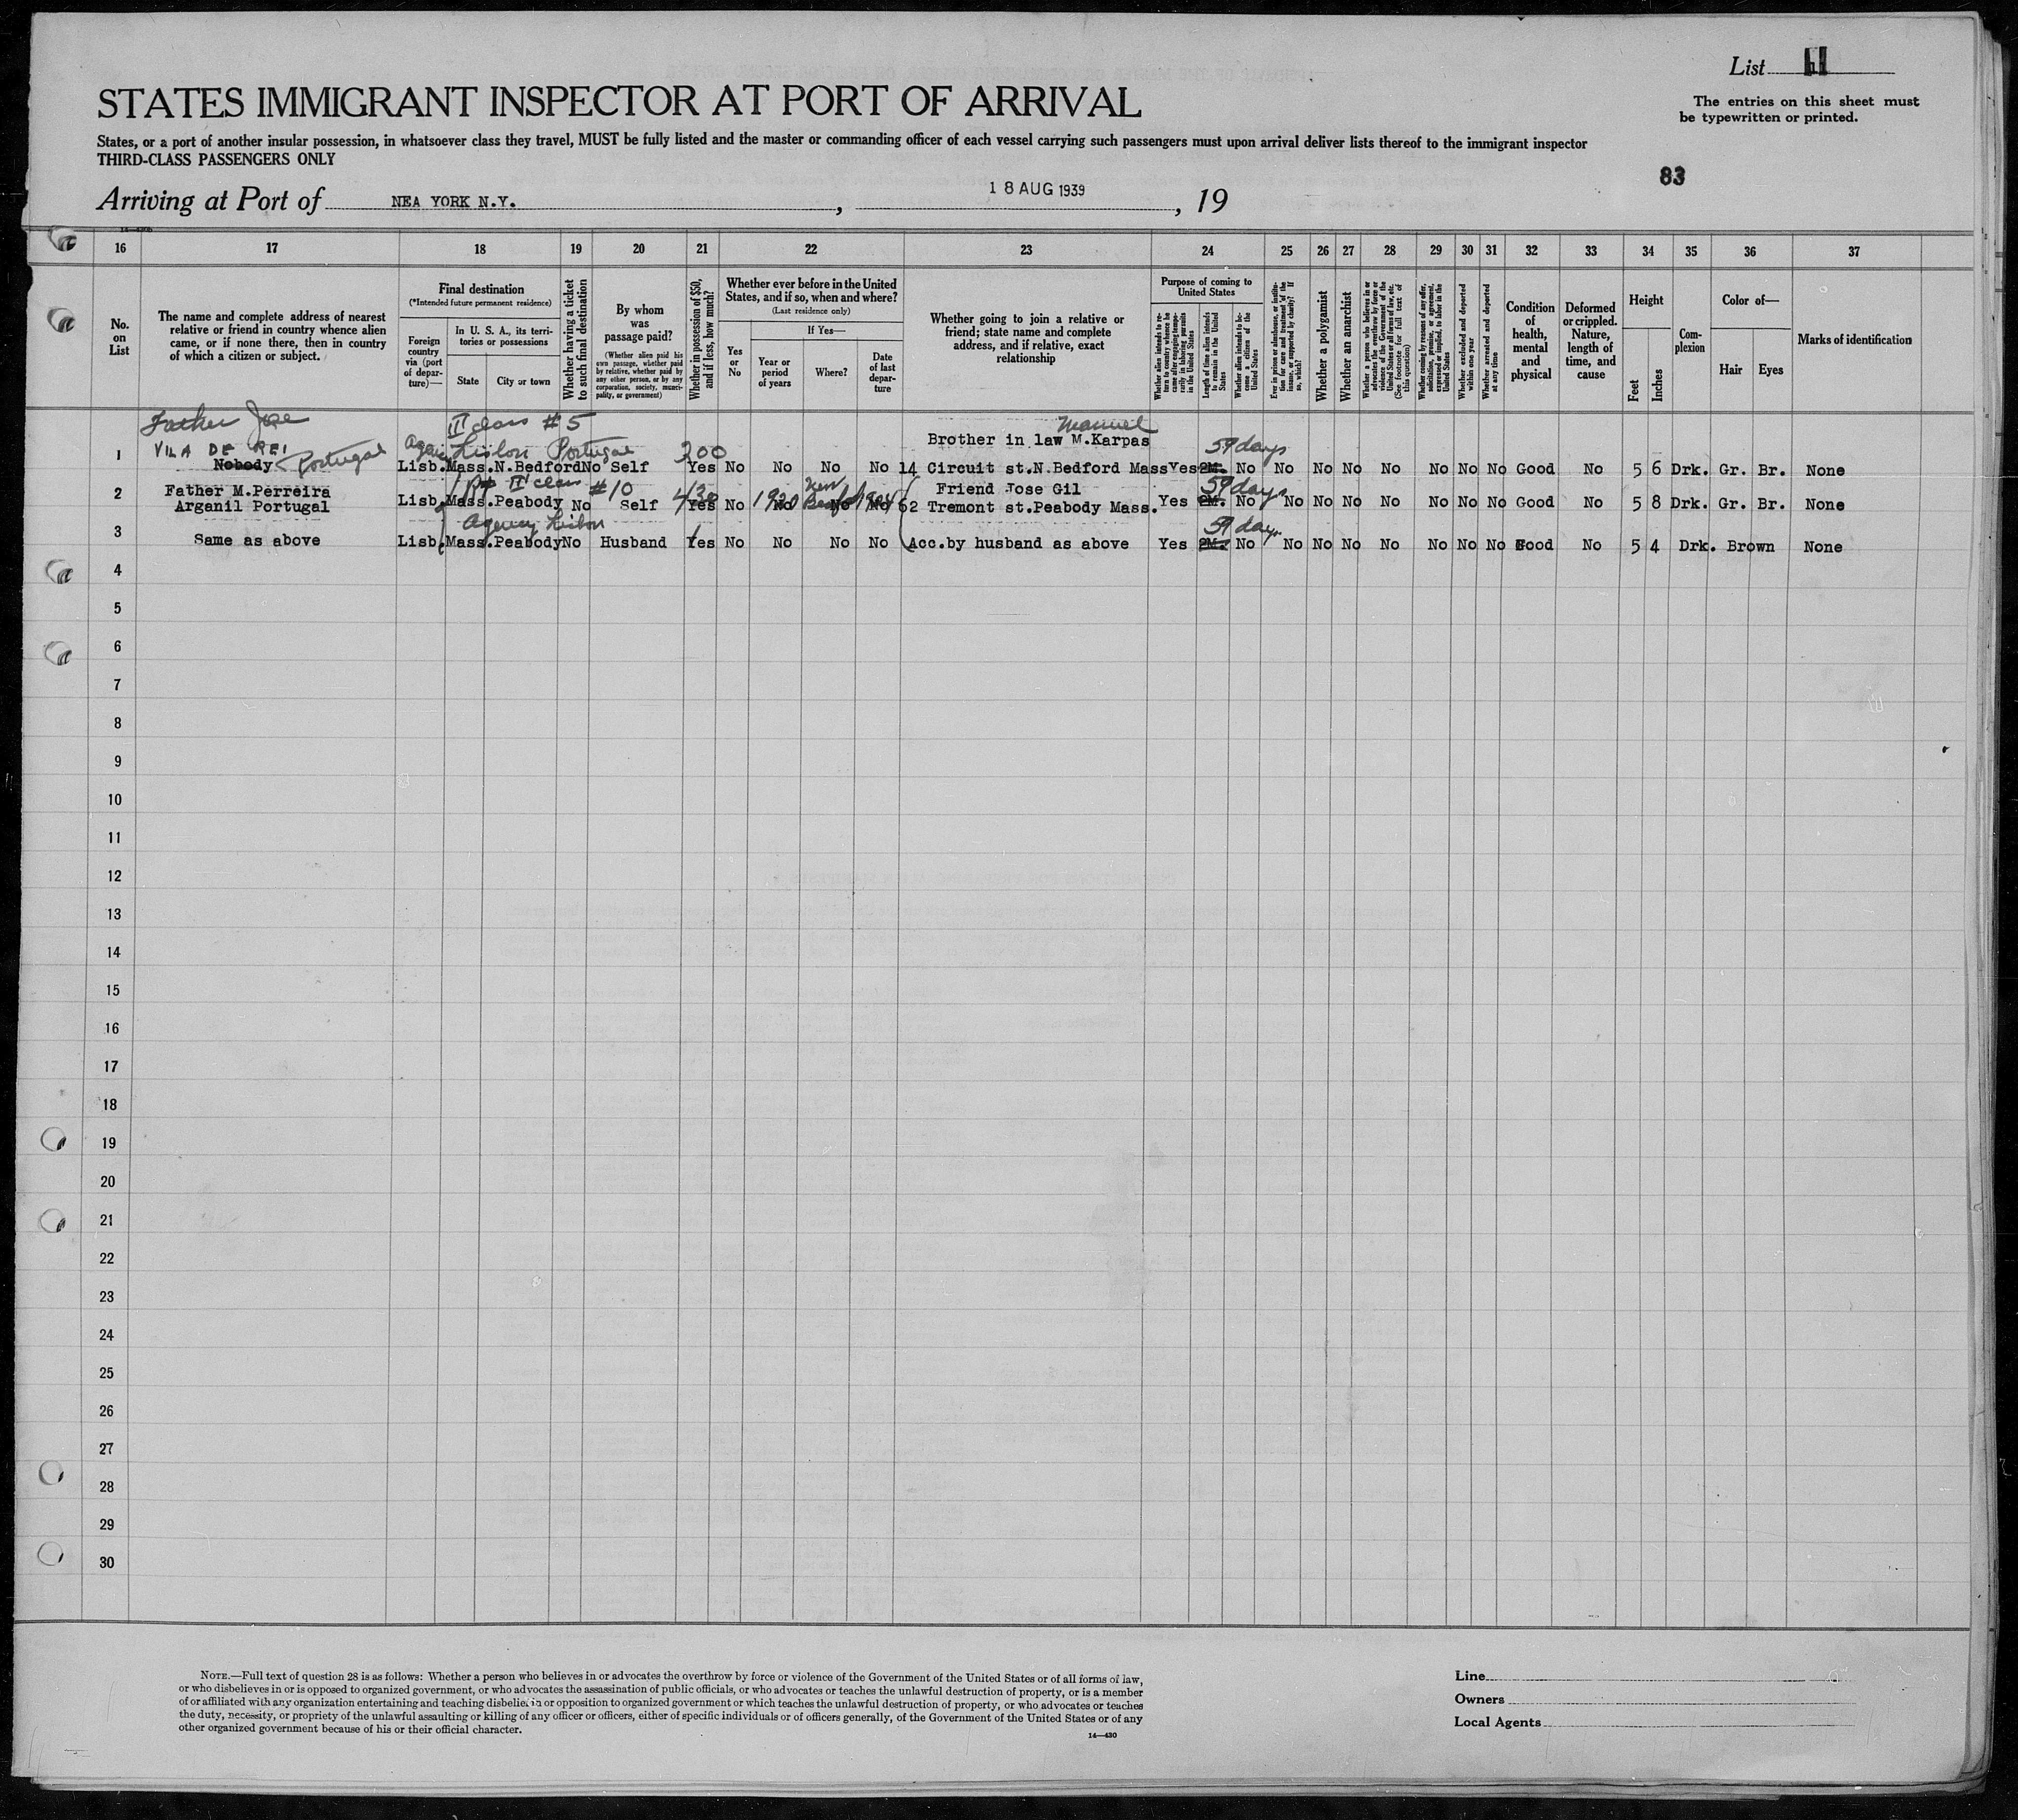 List 11
The entries on this sheet must
be typewritten or printed.
STATES IMMIGRANT INSPECTOR AT PORT OF ARRIVAL
States, or a port of another insular possession, in whatsoever class they travel, MUST be fully listed and the master or commanding officer of each vessel carrying such passengers must upon arrival deliver lists thereof to the immigrant inspector
THIRD-CLASS PASSENGERS ONLY
83
Arriving at Port of NEA YORK N.Y. , 18 AUG 1939 , 19
16 17 18 19 20 21 22 23 24 25 26 27 28 29 30 31 32 33 34 35 36 37
No.
on
List
The name and complete address of nearest
relative or friend in country whence alien
came, or if none there, then in country
of which a citizen or subject.
Final destination
(*Intended future permanent residence)
Foreign
country
via (port
of depar-
ture)—
In U. S. A., its terri-
tories or possessions
State
City or town
Whether having a ticket
to such final destination
By whom
was
passage paid?
(Whether alien paid his
own passage, whether paid
by relative, whether paid by
any other person, or by any
corporation, society, munici-
pality, or government)
Whether in possession of $50,
and if less, how much?
Whether ever before in the United
States, and if so, when and where?
(Last residence only)
Yes
or
No
If Yes—
Year or
period
of years
Where?
Date
of last
depar-
ture
Whether going to join a relative or
friend; state name and complete
address, and if relative, exact
relationship
Purpose of coming to
United States
Whether alien intends to re-
turn to country whence he
came after engaging tempo-
rarily in laboring pursuits
in the United States
Length of time alien intends
to remain in the United
States
Whether alien intends to be-
come a citizen of the
United States
Ever in prison or almshouse, or institu-
tion for care and treatment of the
insane, or supported by charity? If
so, which?
Whether a polygamist
Whether an anarchist
Whether a person who believes in or
advocates the overthrow by force or
violence of the Government of the
United States or all forms of law, etc.
(See footnote for full text of
this question)
Whether coming by reasons of any offer,
solicitation, promise, or agreement,
expressed or implied, to labor in the
United States
Whether excluded and deported
within one year
Whether arrested and deported
at any time
Condition
of
health,
mental
and
physical
Deformed
or crippled.
Nature,
length of
time, and
cause
Height
Feet
Inches
Com-
plexion
Color of—
Hair
Eyes
Marks of identification
Father Jose III class #5 Manuel
VILA DE REI Portugal Lisbon Portugal 200 Brother in law M.Karpas 59 days
1 Nobody Lisb. Mass. N.Bedford No Self Yes No No No No 14 Circuit st.N.Bedford Mass Yes No No No No No No No No Good No 5 6 Drk. Gr. Br. None
2 Father M.Perreira III class #10 430 New Friend Jose Gil 59 days
Arganil Portugal Lisb. Mass. Peabody No Self Yes No 1920 No No No 1924 62 Tremont st.Peabody Mass. Yes No No No No No No No No Good No 5 8 Drk. Gr. Br. None
3 Agency Lisbon 59 days
Same as above Lisb. Mass. Peabody No Husband Yes No No No No Acc.by husband as above Yes No No No No No No No No Good No 5 4 Drk. Brown None
4
5
6
7
8
9
10
11
12
13
14
15
16
17
18
19
20
21
22
23
24
25
26
27
28
29
30
NOTE.—Full text of question 28 is as follows: Whether a person who believes in or advocates the overthrow by force or violence of the Government of the United States or of all forms of law,
or who disbelieves in or is opposed to organized government, or who advocates the assassination of public officials, or who advocates or teaches the unlawful destruction of property, or is a member
of or affiliated with any organization entertaining and teaching disbelief in or opposition to organized government or which teaches the unlawful destruction of property, or who advocates or teaches
the duty, necessity, or propriety of the unlawful assaulting or killing of any officer or officers, either of specific individuals or of officers generally, of the Government of the United States or of any
other organized government because of his or their official character.
14—430
Line
Owners
Local Agents